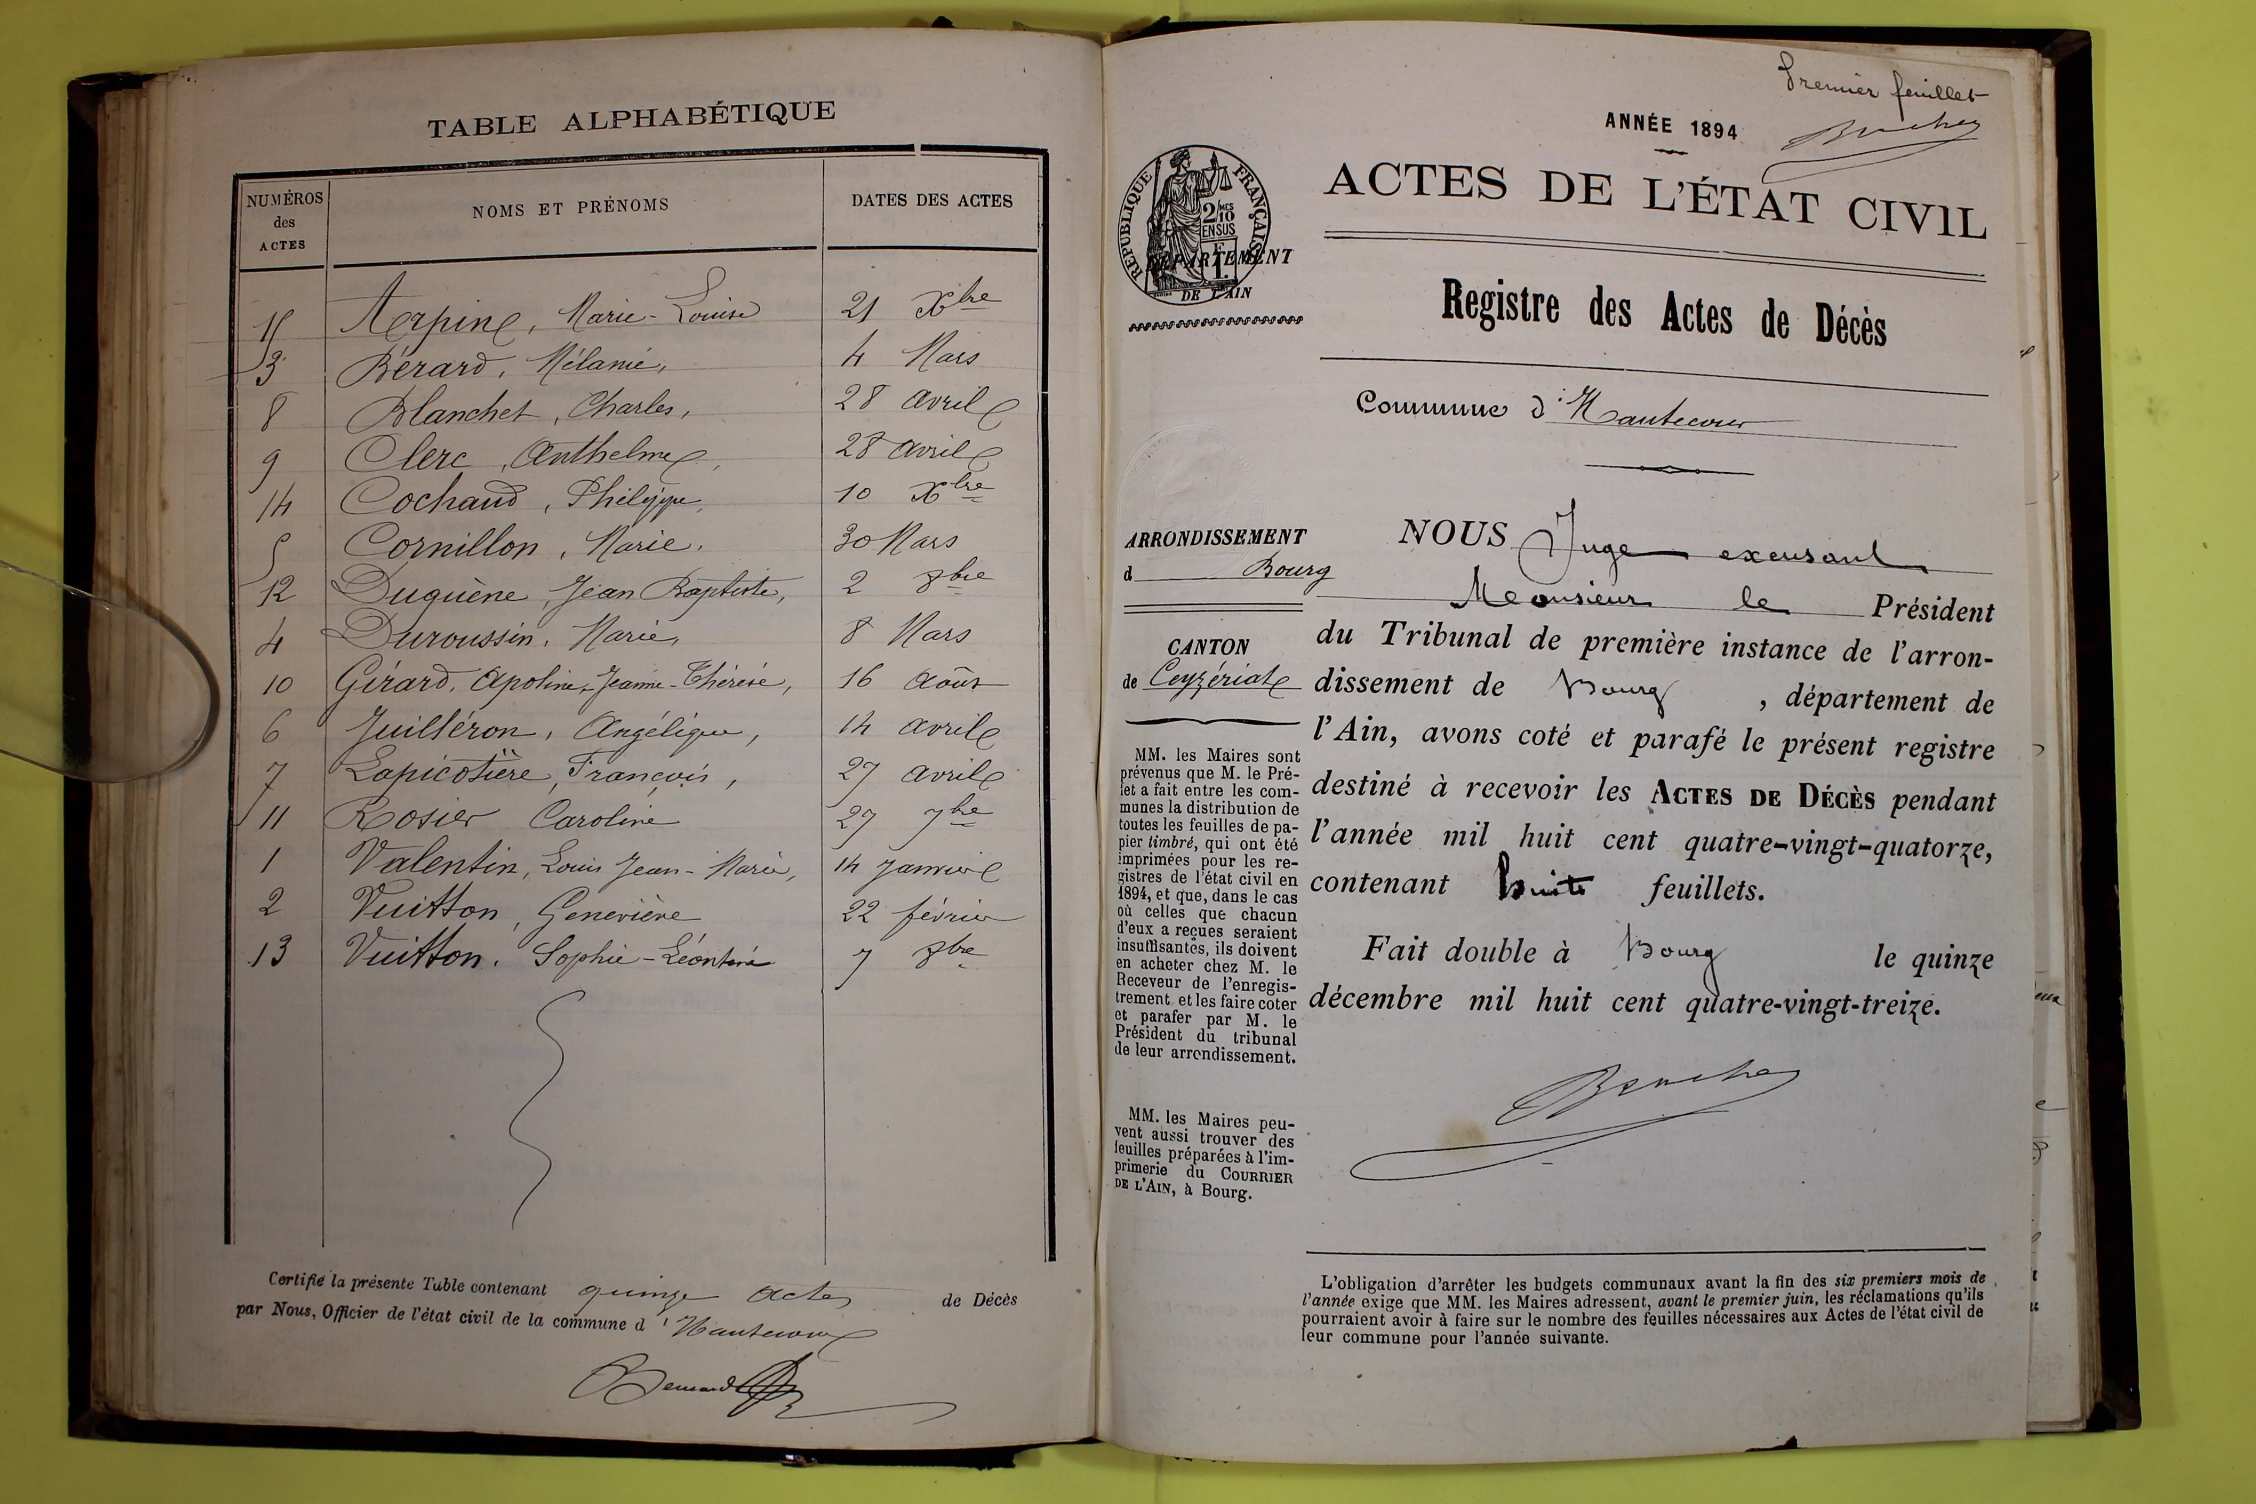 TABLE ALPHABÉTIQUE
NUMÉROS des ACTES NOMS ET PRÉNOMS DATES DES ACTES
15 Arpin, Marie-Louise 21 Xbre
3 Bérard, Mélanie, 4 Mars
8 Blanchet, Charles, 28 avril
9 Clerc, Anthelme, 28 avril
14 Cochaud, Philippe, 10 Xbre
5 Cornillon, Marie, 30 Mars
12 Duguène, Jean Baptiste, 2 8bre
4 Duroussin, Marie, 8 Mars
10 Gérard, Apoline-Jeanne-Thérèse, 16 Août
6 Juilléron, Angélique, 14 avril
7 Lapicotière, François, 27 avril
11 Rosier Caroline 27 7bre
1 Valentin, Louis Jean-Marie, 14 Janvier
2 Vuitton, Geneviève 22 février
13 Vuitton, Sophie-Léontine 7 8bre
Certifié la présente Table contenant quinze actes de Décès
par Nous, Officier de l'état civil de la commune d'Hautecour
Premier feuillet
ANNÉE 1894
ACTES DE L'ÉTAT CIVIL
RÉPUBLIQUE FRANÇAISE
2/10 MES
EN SUS
DÉPARTEMENT
DE L'AIN
Registre des Actes de Décès
Commune d'Hautecour
ARRONDISSEMENT
d Bourg
CANTON
de Ceyzériat
MM. les Maires sont
prévenus que M. le Pré-
fet a fait entre les com-
munes la distribution de
toutes les feuilles de pa-
pier timbré, qui ont été
imprimées pour les re-
gistres de l'état civil en
1894, et que, dans le cas
où celles que chacun
d'eux a reçues seraient
insuffisantes, ils doivent
en acheter chez M. le
Receveur de l'enregis-
trement et les faire coter
et parafer par M. le
Président du tribunal
de leur arrondissement.
MM. les Maires peu-
vent aussi trouver des
feuilles préparées à l'im-
primerie du COURRIER
DE L'AIN, à Bourg.
NOUS Juge excusant
Monsieur le Président
du Tribunal de première instance de l'arron-
dissement de Bourg, département de
l'Ain, avons coté et parafé le présent registre
destiné à recevoir les ACTES DE DÉCÈS pendant
l'année mil huit cent quatre-vingt-quatorze,
contenant huit feuillets.
Fait double à Bourg le quinze
décembre mil huit cent quatre-vingt-treize.
L'obligation d'arrêter les budgets communaux avant la fin des six premiers mois de
l'année exige que MM. les Maires adressent, avant le premier juin, les réclamations qu'ils
pourraient avoir à faire sur le nombre des feuilles nécessaires aux Actes de l'état civil de
leur commune pour l'année suivante.